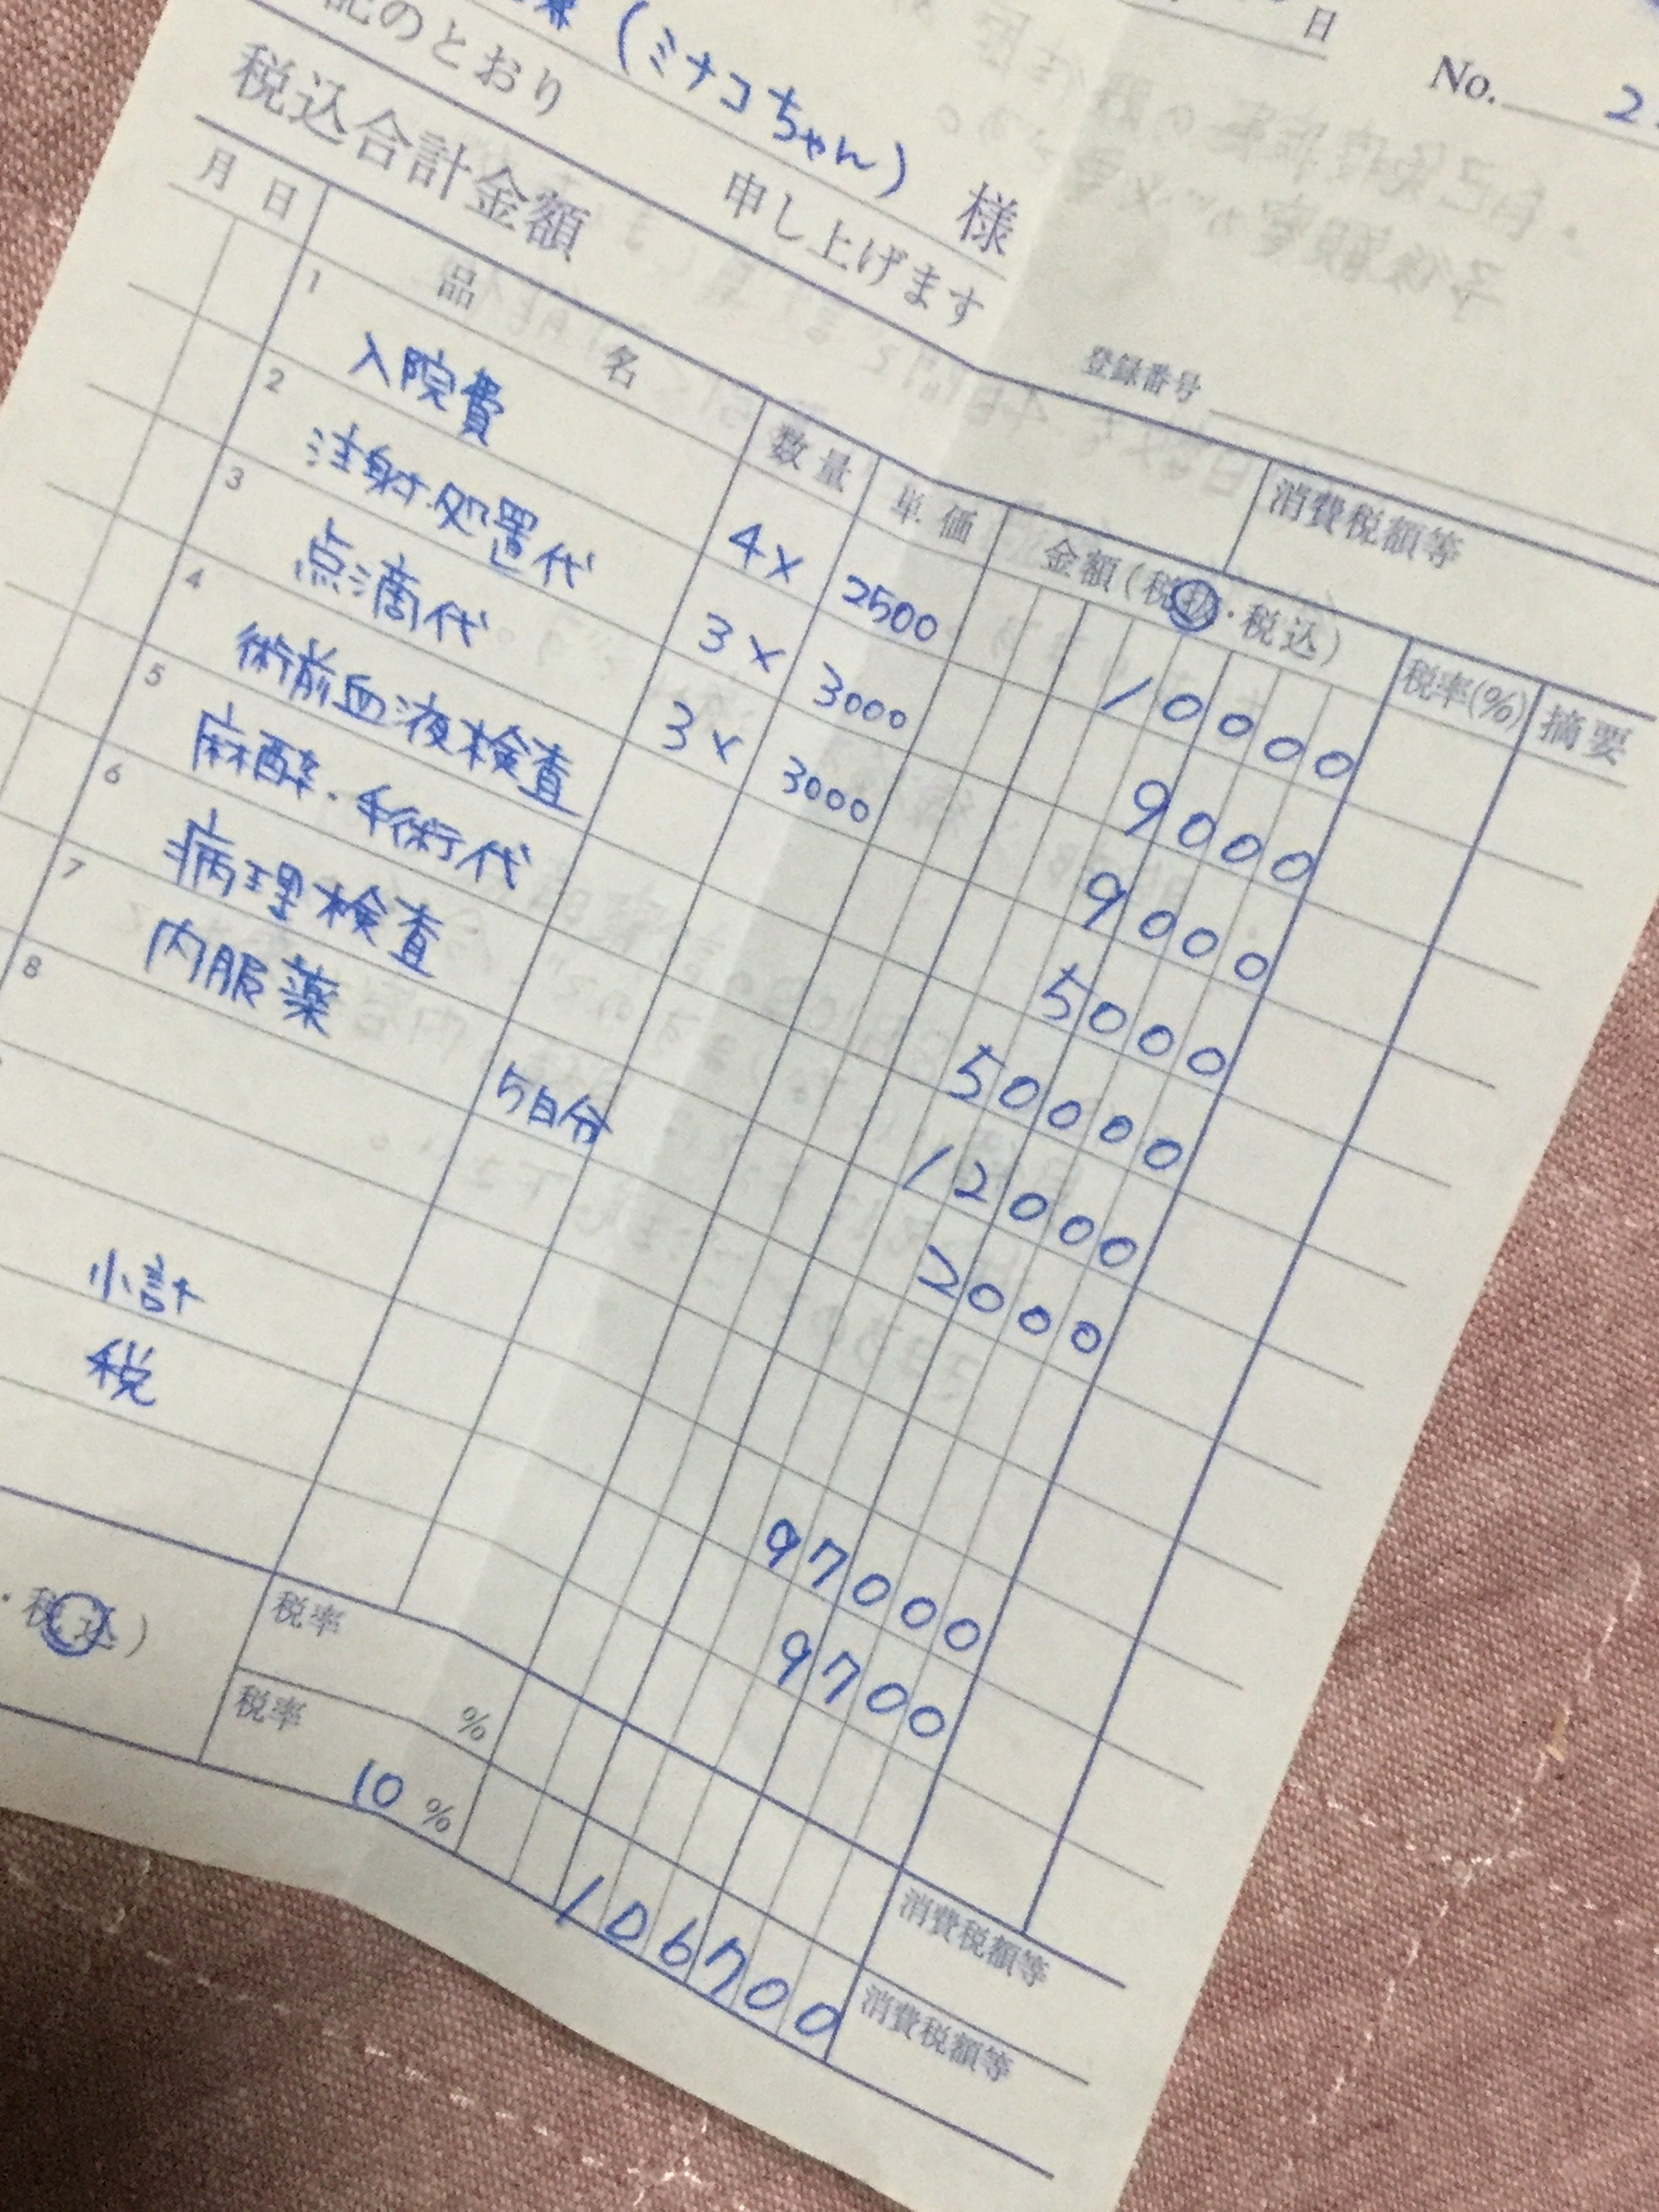 日
No. 2
(ミナコちゃん) 様
記のとおり 申し上げます
税込合計金額
登録番号
消費税額等
月 日 品 名 数量 単価 金額(税抜・税込) 税率(%) 摘要
1 入院費 4× 2500 10000
2 注射・処置代 3× 3000 9000
3 点滴代 3× 3000 9000
4 術前血液検査 5000
5 麻酔・手術代 50000
6 病理検査 12000
7 内服薬 5日分 2000
8
小計 97000
税 9700
・税込) 税率 % 消費税額等
税率 10 % 106700 消費税額等